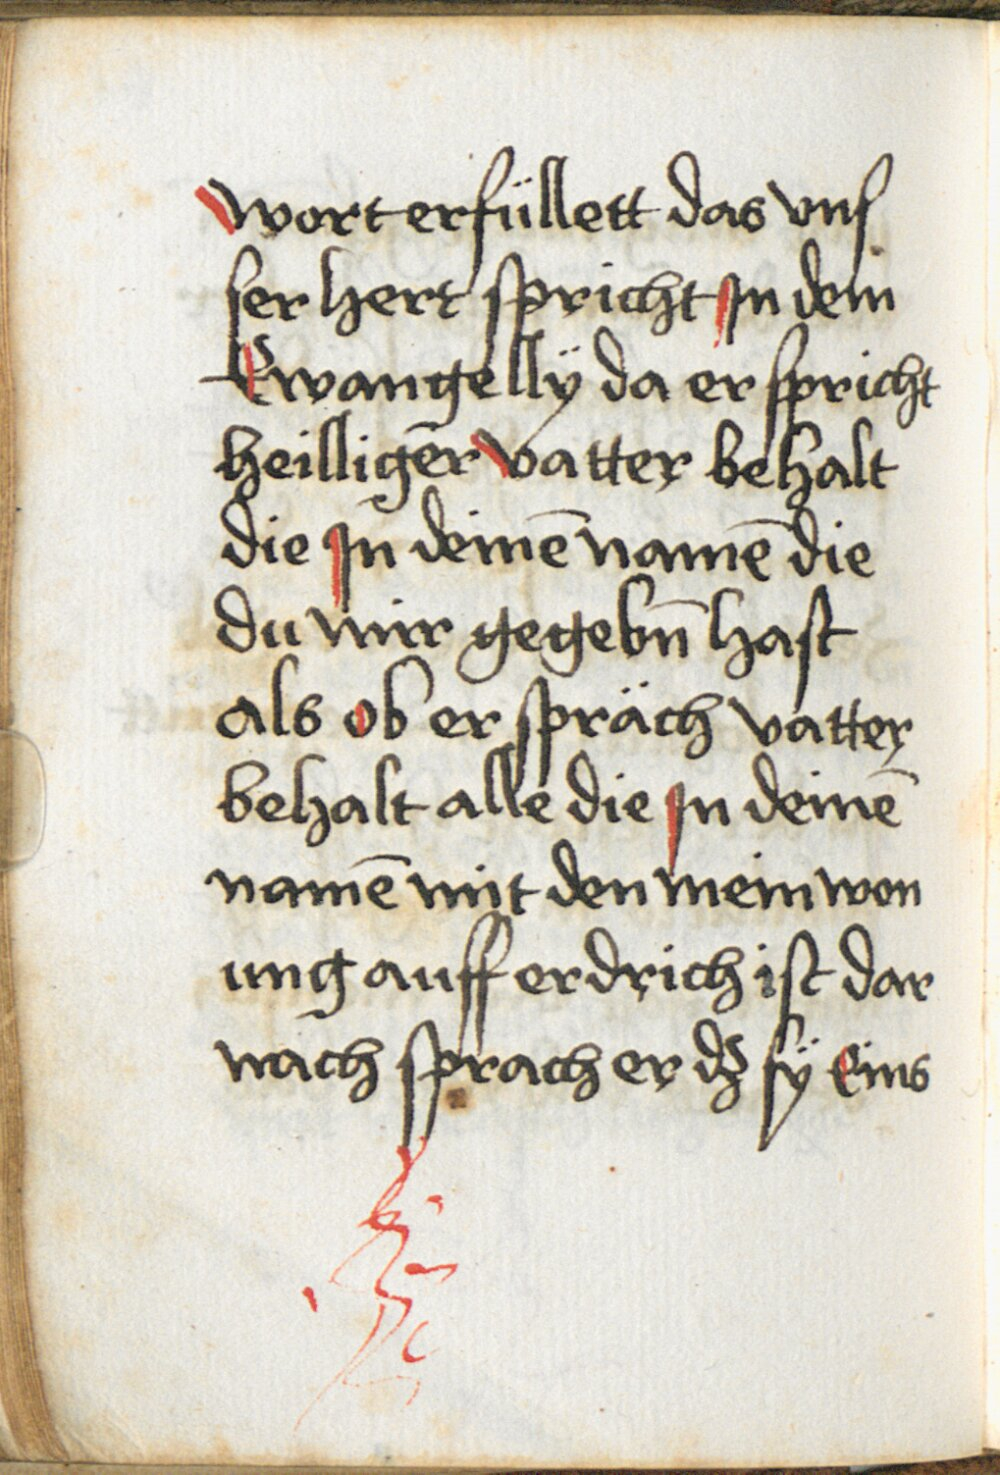 wort erfüllett das vnſ
ſer hert ſpricht Jn dem
Ewangellÿ da er ſpricht
heilliger vatter behalt
die Jn deinē namē die
du mir gegebn̄ haſt
als ob er ſpräch vatter
behalt alle die Jn deinē
namē mit den mein won
ung auff erdrich iſt dar
nach ſprach er dz ſÿ Eins